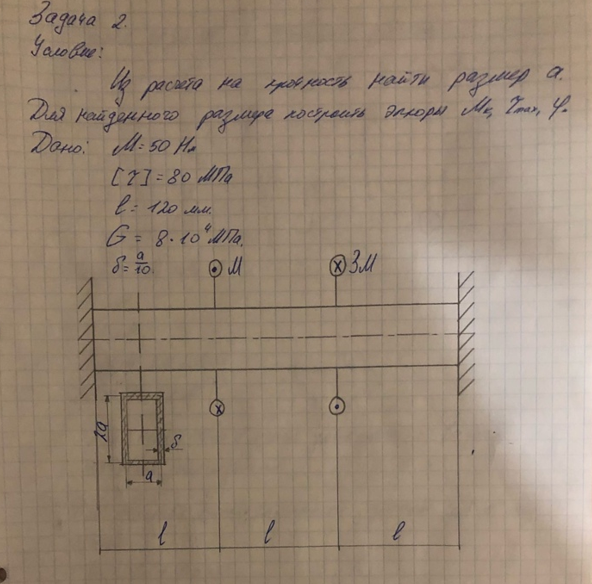 Задача 2.
Условие:
Из расчета на прочность найти размер a.
Для найденного размера построить эпюры Mк, τmax, φ.
Дано: M = 50 Нм
[τ] = 80 МПа
l = 120 мм.
G = 8·10⁴ МПа.
δ = a/10.
M
3M
2a
δ
a
l
l
l